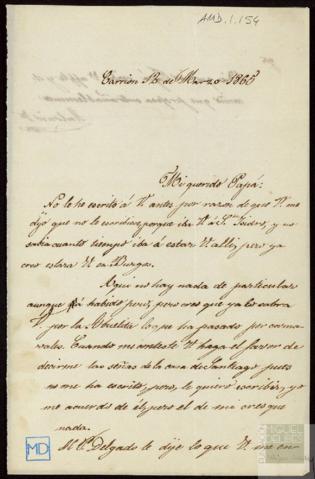 AMD.1.154
Carrion 12 de Marzo 1866
Mi querido Papá:
No le he escrito á V antes por razon de que V. me
dijo que no le escribiera porque iba V á Sn Isidro, y no
sabia cuanto tiempo iba á estar V alli, pero ya
creo estara V en Burgos.
Aqui no hay nada de particular
aunque lo á habido pero, pero creo que ya lo sabra
V. por la Abuelita lo que ha pasado por carna-
vales. Cuando me conteste V haga el favor de
decirme las señas de la casa de Santiago pues
no me ha escrito, pero, le quiero escribir, yo
me acuerdo de él, pero el de mi creo que
nada.
A Delgado le dije lo que V. me en-
MD